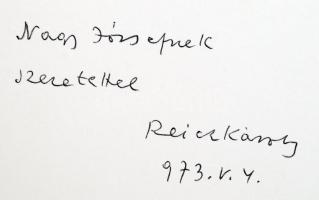 Nagy Józsefnek
szeretettel
Reich Károly
973. V. 4.